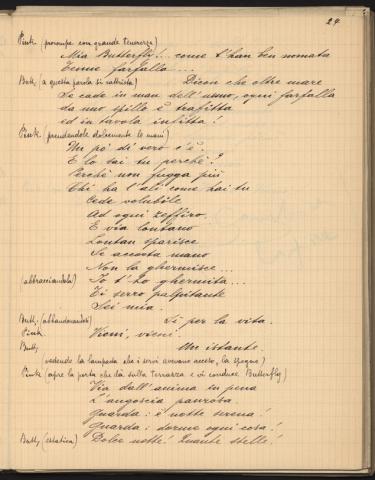 24
Pink. (prorompe con grande tenerezza)
Mia Butterfly!.. come t'han ben nomata
Tenue farfalla....
Butt. (a questa parola si rattrista) Dicon che oltre mare
Se cade in man dell'uomo, ogni farfalla
da uno spillo è trafitta
ed in tavola infitta!
Pink. (prendendole dolcemente le mani)
Un po' di vero c'è.
E lo sai tu perchè?
Perchè non fugga più
Chi ha l'ali come hai tu
Cede volubile
Ad ogni zeffiro.
E via lontano
Lontan sparisce
Se accorta mano
Non la ghermisce...
(abbracciandola) Io t'ho ghermita...
Ti serro palpitante
Sei mia.
Butt. (abbandonandosi) Sì per la vita.
Pink. Vieni, vieni.
Butt. Un istante.
vedendo la lampada che i servi avevano acceso, la spegne)
Pink (apre la porta che dà sulla terrazza e vi conduce Butterfly)
Via dall'anima in pena
L'angoscia paurosa.
Guarda: è notte serena!
Guarda: dorme ogni cosa!
Butt. (estatica) Dolce notte! Quante stelle!